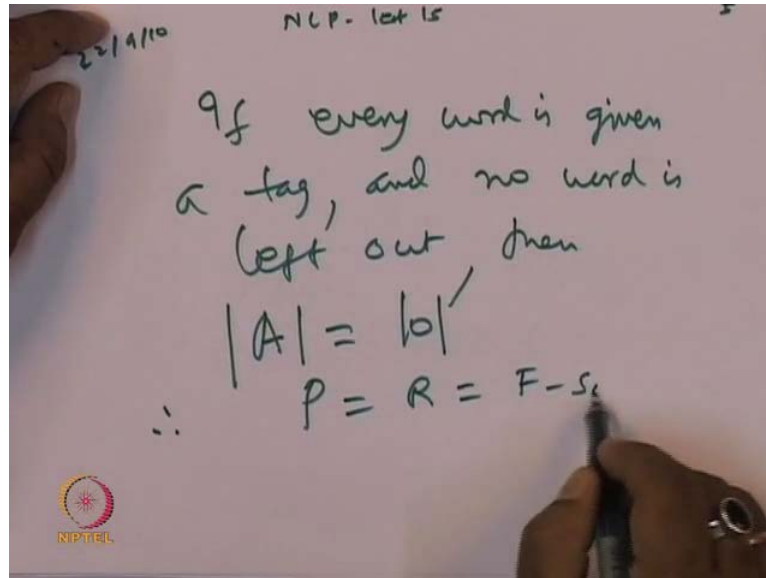 22/9/10
NLP - lect 15
5
If every word is given
a tag, and no word is
left out, then
|A| = |O|
∴ P = R = F-Sc
NPTEL